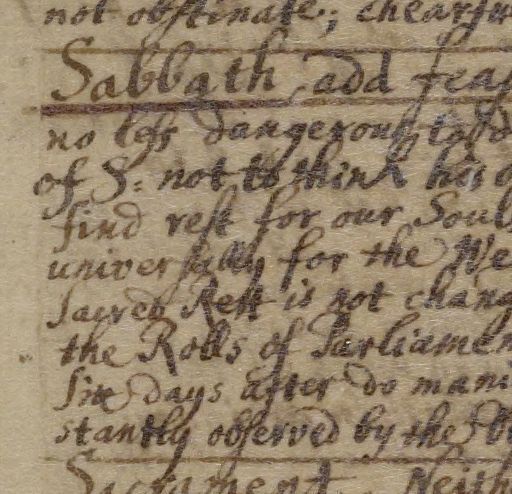 not obstinate; chearfu
Sabbath, add feas
no less dangerous to
of S: not to think his
find rest for our Souls
universally for the We
sacred Rest is not chang
the Rolls of Parliamen
days after do mani
stantly observed by the
Sacrament Neith